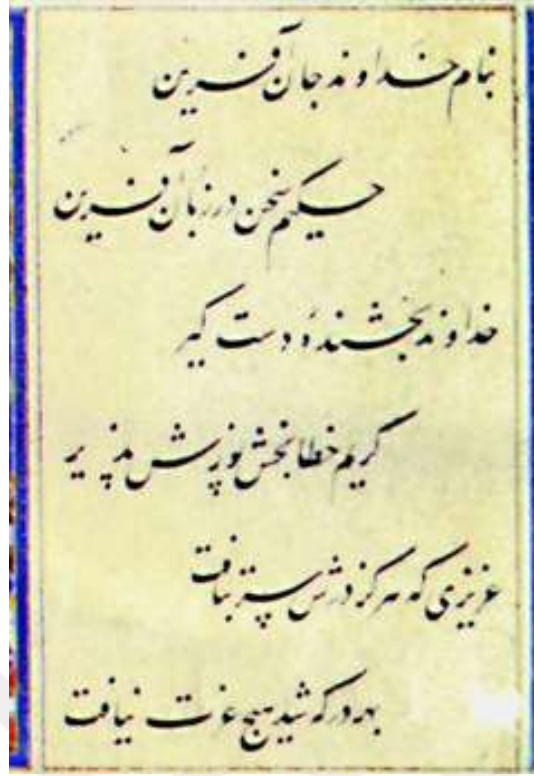 بنام خداوند جان آفرین
حکیم سخن در زبان آفرین
خداوند بخشندهٔ دست گیر
کریم خطا بخش پوزش پذیر
عزیزی که هرکز درش سر بتافت
بهر در که شد هیچ عزت نیافت